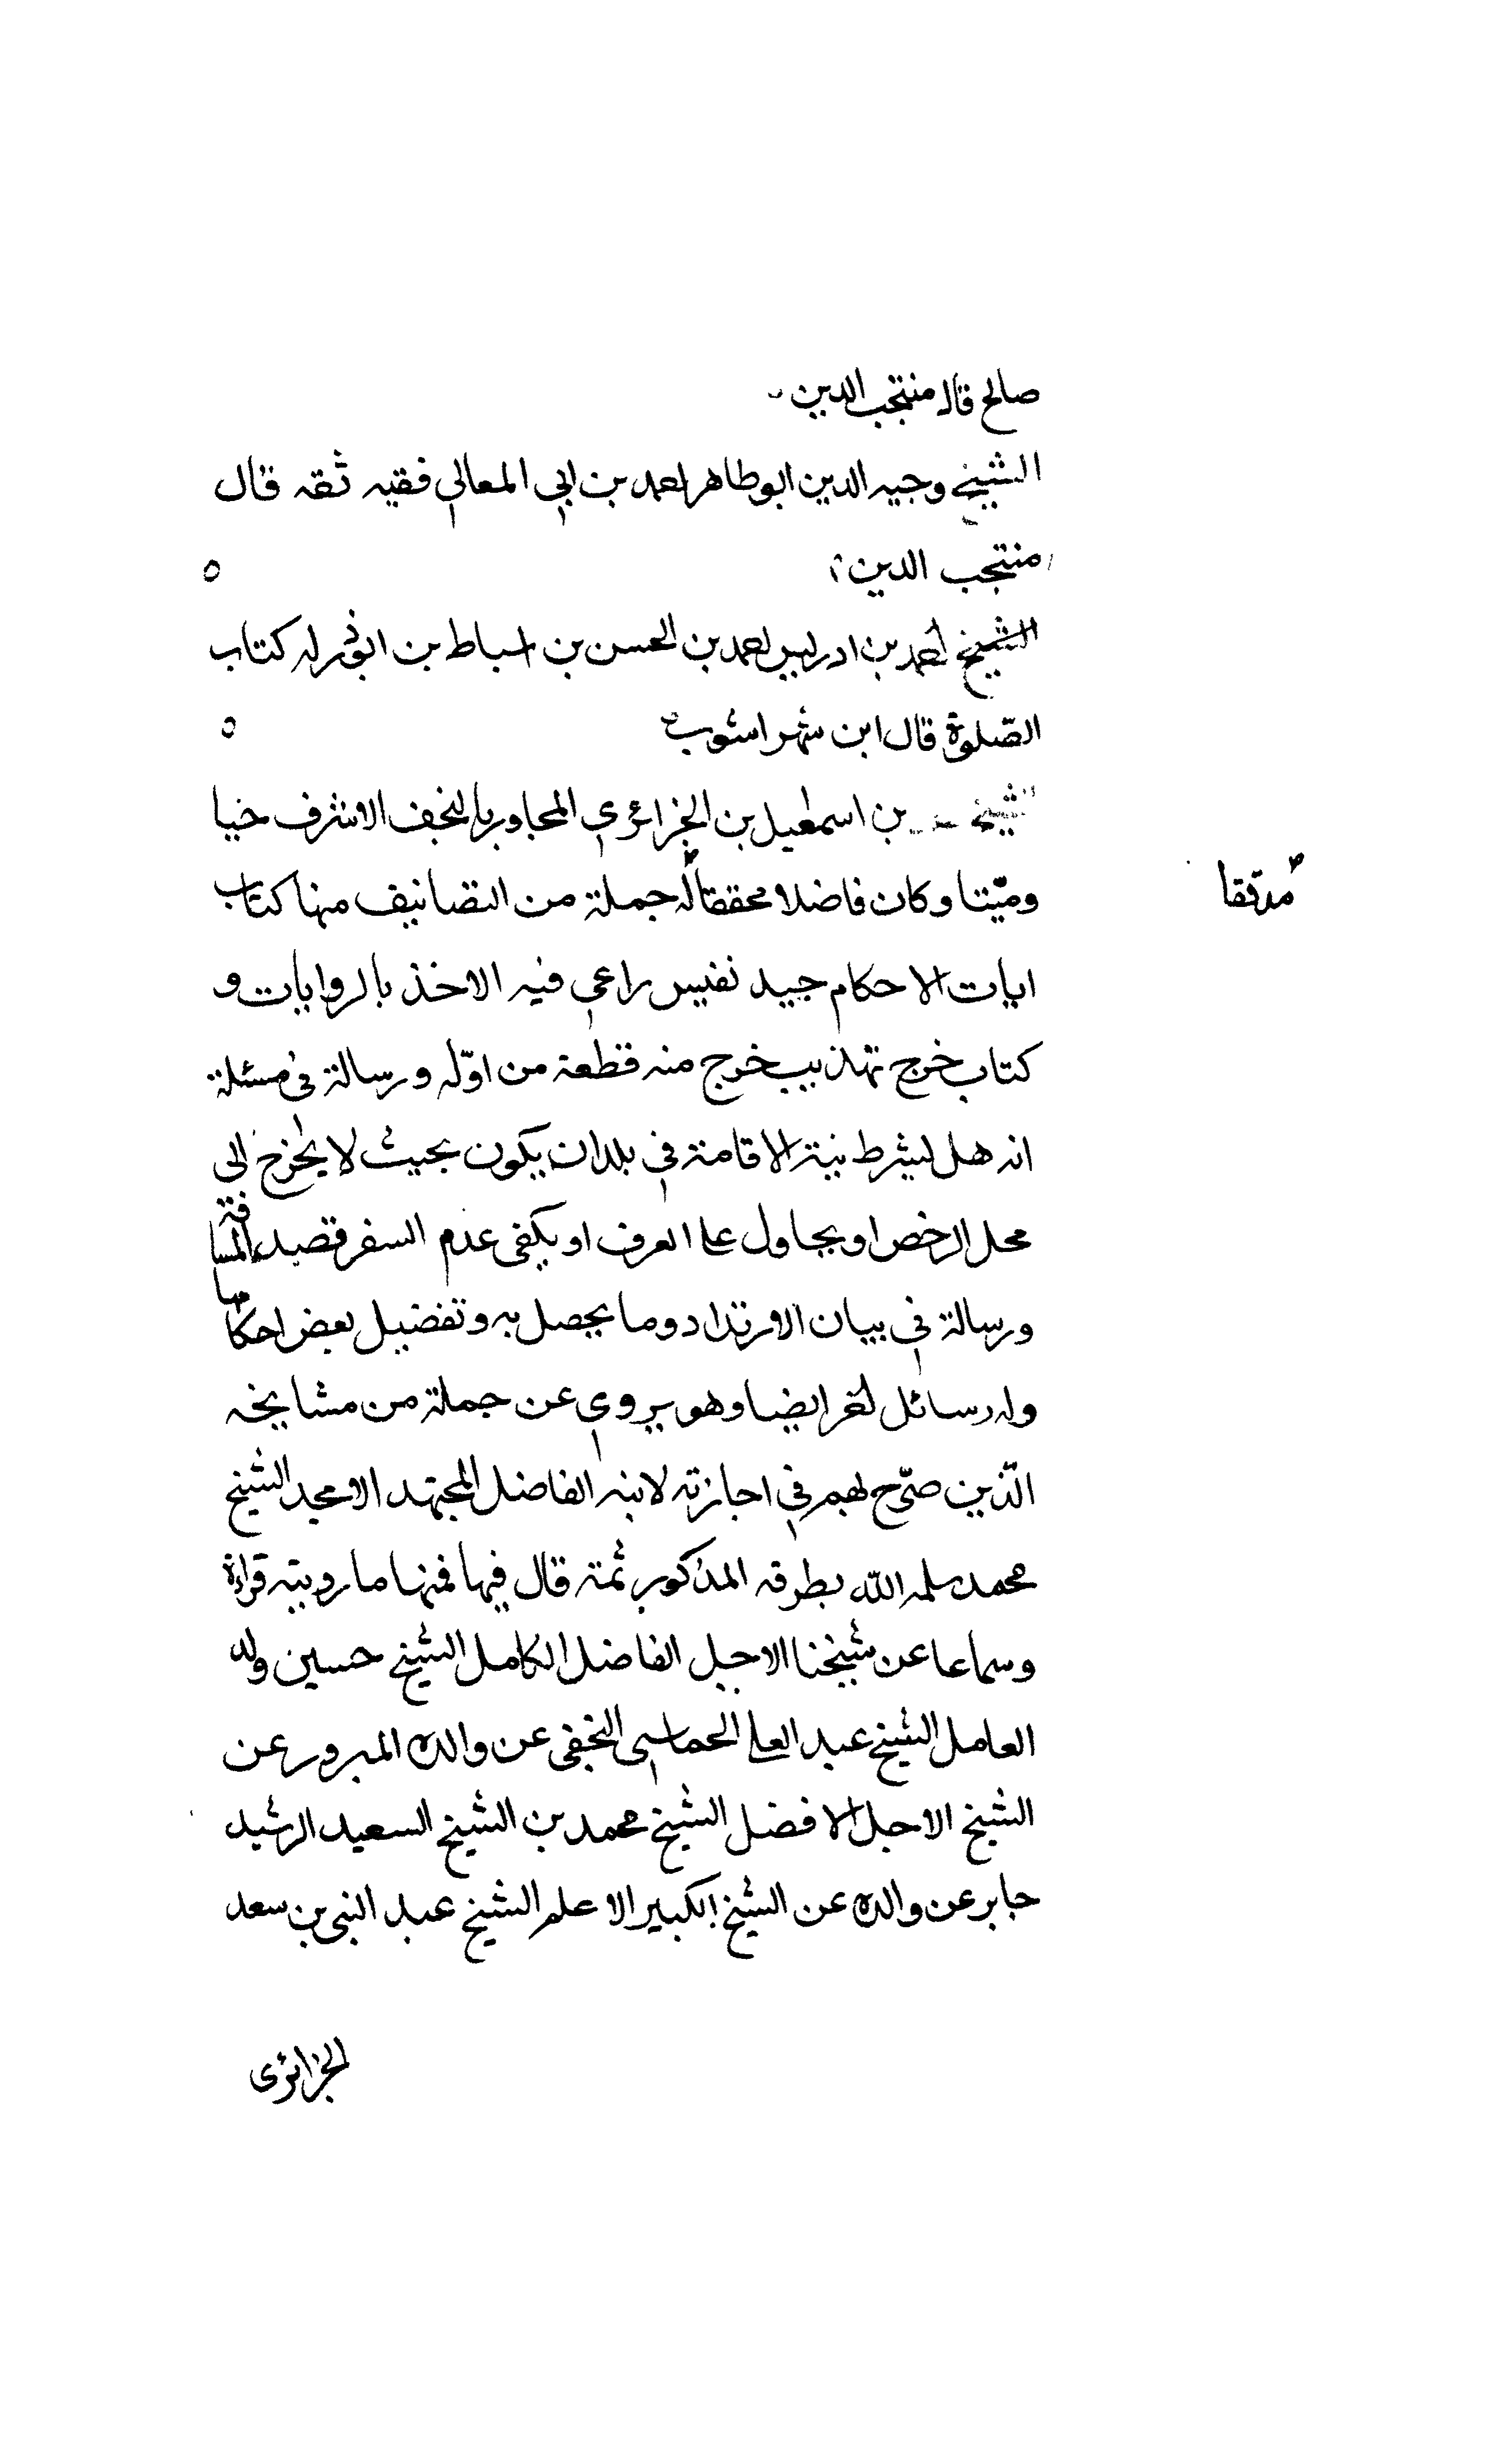 صالح قاله منتجب الدين
الشيخ وجيه الدين ابو طاهر احمد بن ابي المعالي فقيه ثقه قال
منتجب الدين
الشيخ احمد بن ادريس احمد بن الحسن بن اسباط بن ابوذر له كتاب
الصّلوة قال ابن شهر اشوب
الشيخ بن اسمعيل بن الجزائري المجاور بالنجف الاشرف حيا
وميّتا وكان فاضلا محققا له جملة من التصانيف منها كتاب
مدققا
ايات الاحكام جيد نفيس راعي فيه الاخذ بالروايات و
كتاب خرج تهذيب خرج منه قطعة من اوّله ورسالة في مسئلة
انه هل يشرط نية الاقامة في بلد ان يكون بحيث لا يخرج الى
محل الرخص او يحاول على العرف او يكفى عدم السفر قصد المسافة
ورسالة في بيان الارتداد وما يحصل به وتفضيل بعض احكامها
وله رسائل اخر ايضا وهو يروي عن جملة من مشايخه
الّذين صرّح بهم في اجازته لابنه الفاضل المجتهد الامجد الشيخ
محمد سلمه الله بطرقه المذكور ثمة قال فيها فمنها ما رويته قراءة
وسماعا عن شيخنا الاجل الفاضل الكامل الشيخ حسين ولد
العامل الشيخ عبد العلى الخماسي النجفى عن والده المبرور عن
الشيخ الاجل الافضل الشيخ محمد بن الشيخ السعيد الرشيد
جابر عن والده عن الشيخ الكبير الاعلم الشيخ عبد النبى بن سعد
الجزائرى